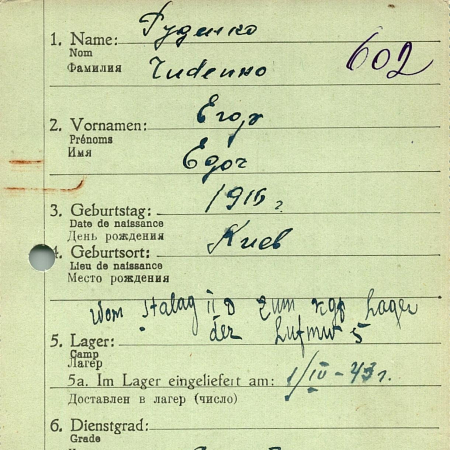 Руденко
1. Name:
Nom
Фамилия
Rudenko
602
Егор
2. Vornamen:
Prénoms
Имя
Egor
3. Geburtstag: 1916 г.
Date de naissance
День рождения
4. Geburtsort: Киев
Lieu de naissance
Место рождения
Vom Stalag II B zum Kgf Lager
der Luftw 5
5. Lager:
Camp
Лагерь
5a. Im Lager eingeliefert am: 1/IV-43 г.
Доставлен в лагерь (число)
6. Dienstgrad:
Grade